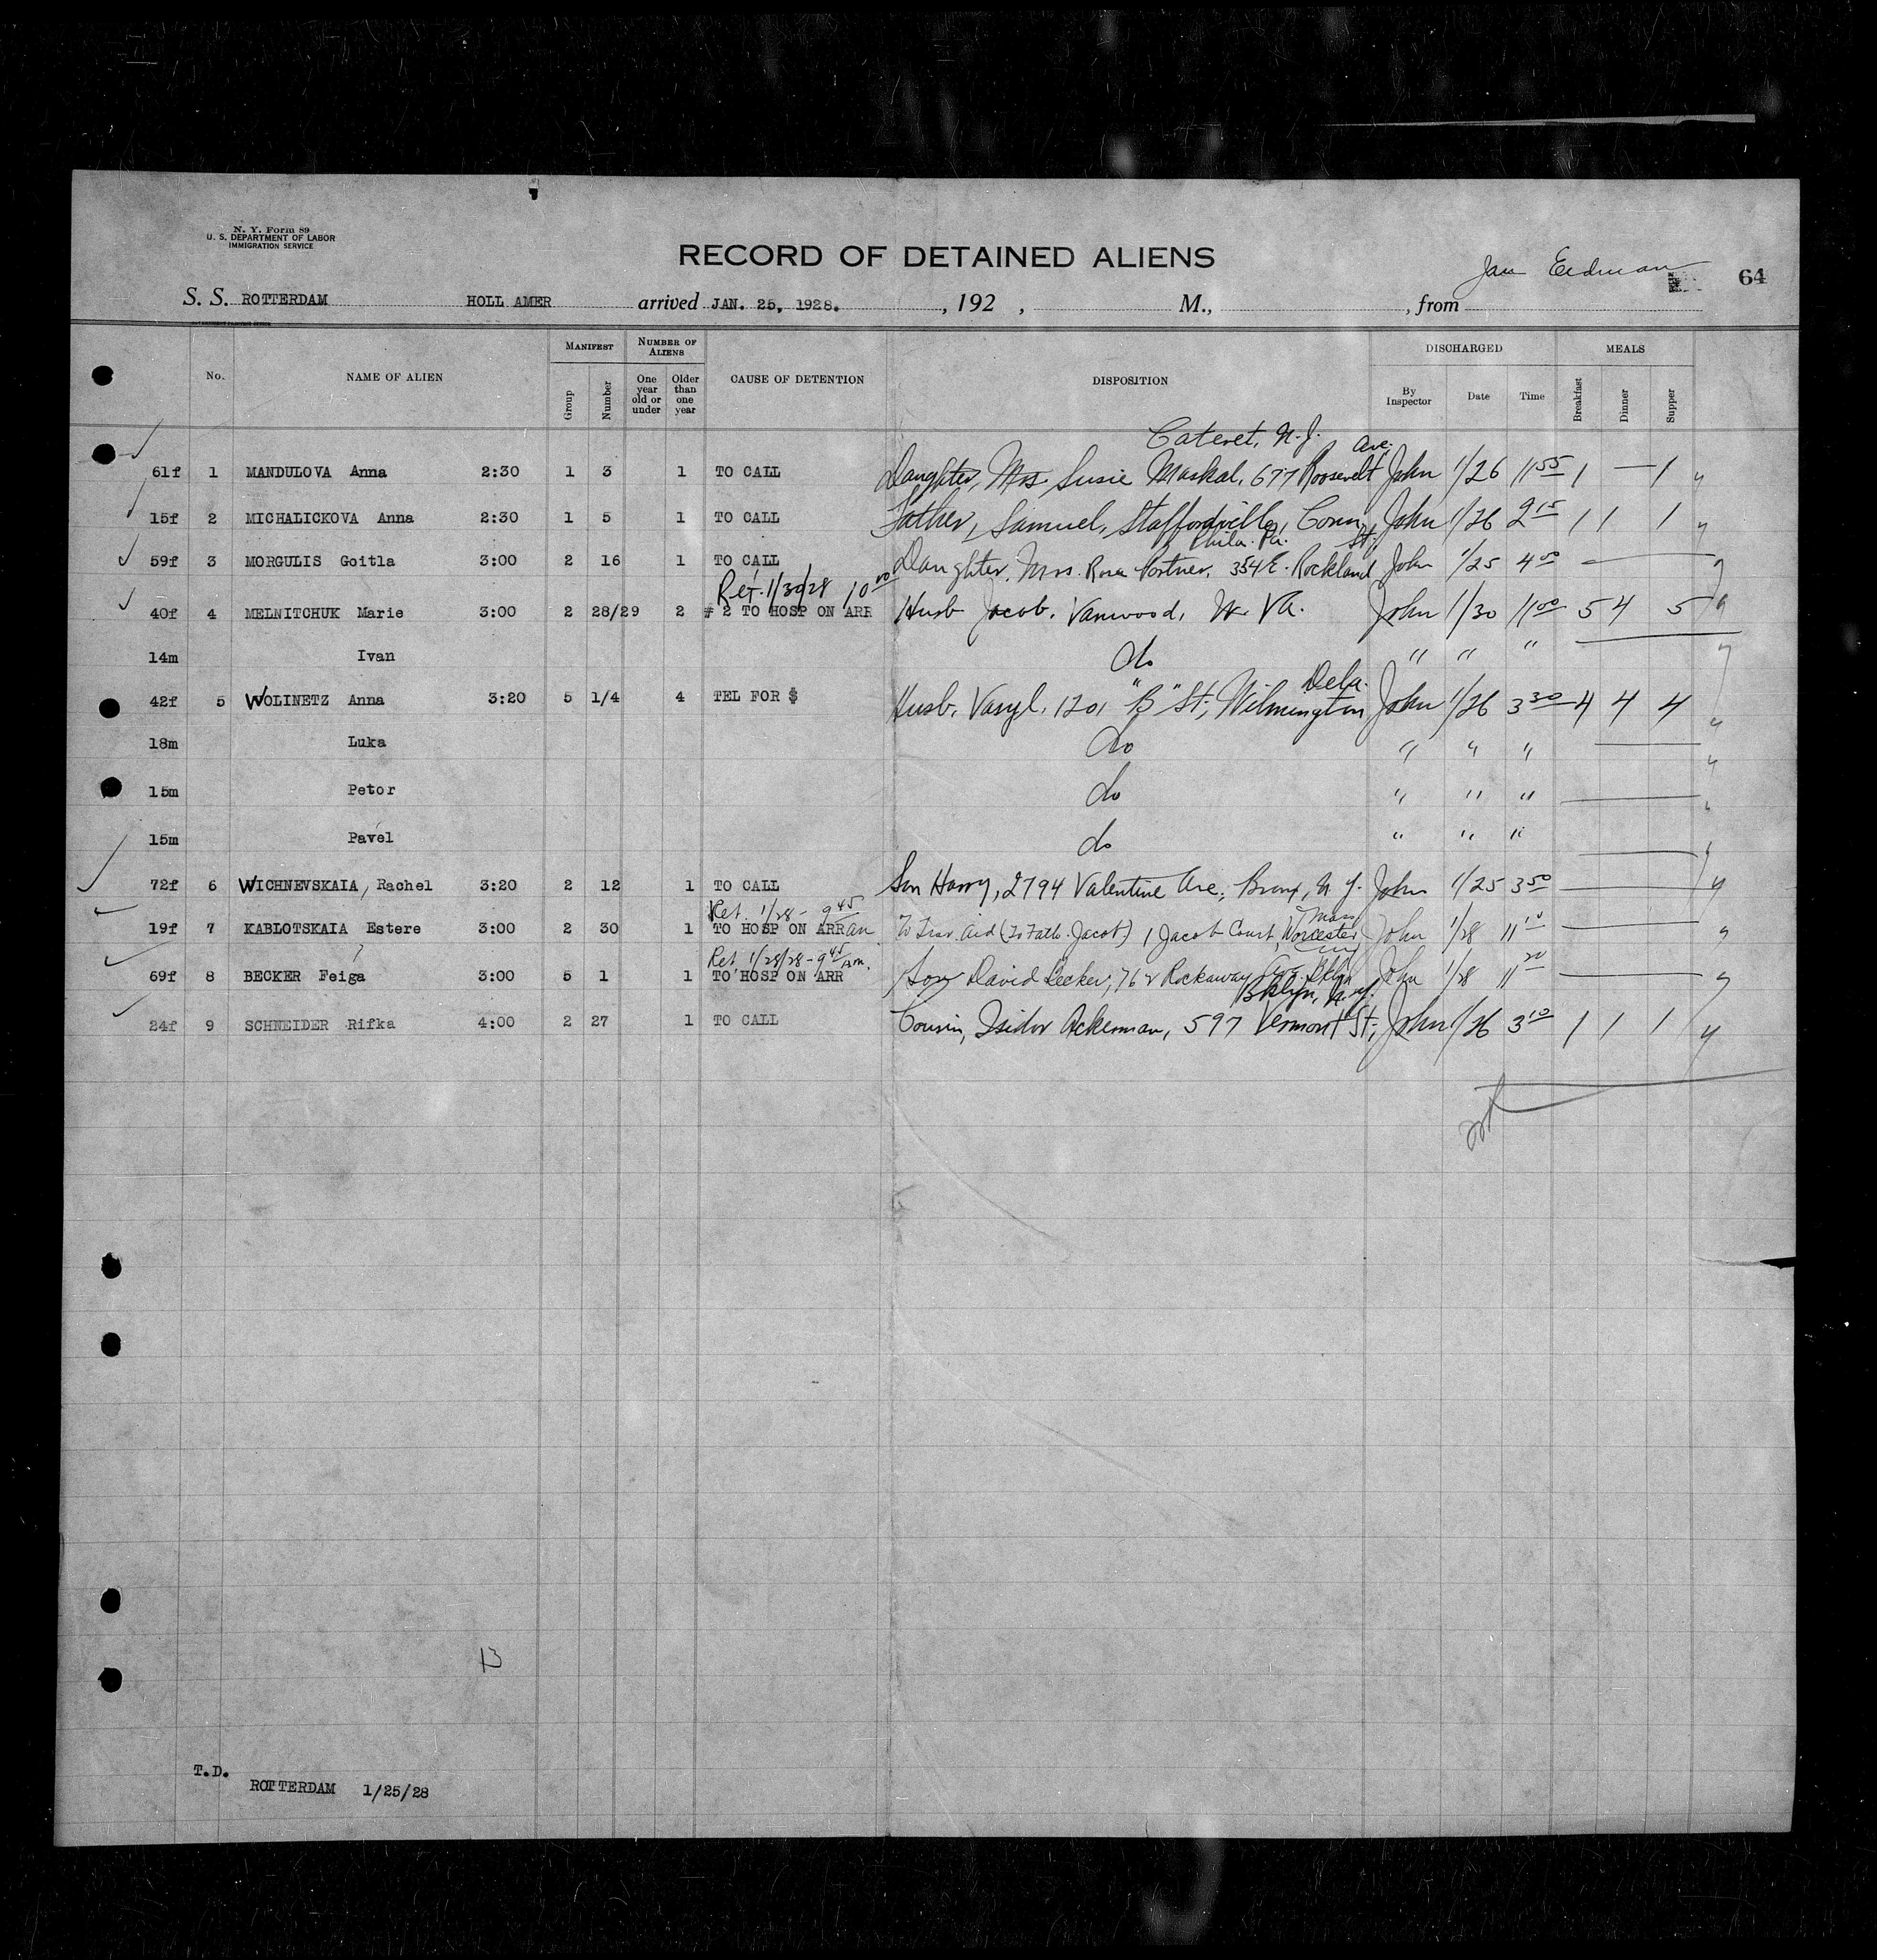 N. Y. Form 89
U. S. DEPARTMENT OF LABOR
IMMIGRATION SERVICE
RECORD OF DETAINED ALIENS
64
S. S. ROTTERDAM HOLL AMER arrived JAN. 25, 1928. , 192 , M., , from
No. NAME OF ALIEN MANIFEST Group Number NUMBER OF ALIENS One year old or under Older than one year CAUSE OF DETENTION DISPOSITION DISCHARGED By Inspector Date Time MEALS Breakfast Dinner Supper
Cateret, N.J. Ave.
61f 1 MANDULOVA Anna 2:30 1 3 1 TO CALL Daughter, Mrs. Susie Maskal, 677 Roosevelt John 1/26 11 55 1 — 1
15f 2 MICHALICKOVA Anna 2:30 1 5 1 TO CALL Father, Samuel, Staffordville, Conn. John 1/26 2 15 1 1 1
Phila. Pa. St.
59f 3 MORGULIS Goitla 3:00 2 16 1 TO CALL Daughter, Mrs. Rosa Portner, 354 E. Rockland John 1/25 4 00
Ret. 1/30/28 10 00
40f 4 MELNITCHUK Marie 3:00 2 28/29 2 # 2 TO HOSP ON ARR Husb Jacob, Vanwood, W. Va. John 1/30 11 00 5 4 5
14m Ivan do " " "
Dela.
42f 5 WOLINETZ Anna 3:20 5 1/4 4 TEL FOR $ Husb. Vasyl, 1201 "B" St., Wilmington John 1/26 3 30 4 4 4
18m Luka do " " "
15m Petor do " " "
15m Pavel do " " "
72f 6 WICHNEVSKAIA, Rachel 3:20 2 12 1 TO CALL Son Harry, 2794 Valentine Ave., Bronx, N.Y. John 1/25 3 50
Ret. 1/28 - 9 45 am Mass
19f 7 KABLOTSKAIA Estere 3:00 2 30 1 TO HOSP ON ARR To Trav. Aid (To Fath. Jacob) 1 Jacob Court, Worcester John 1/28 11 10
Ret 1/28/28 - 9 45 am.
69f 8 BECKER Feiga 3:00 5 1 1 TO HOSP ON ARR Son David Becker, 762 Rockaway Ave. Bklyn John 1/28 11 20
Bklyn, N.Y.
24f 9 SCHNEIDER Rifka 4:00 2 27 1 TO CALL Cousin, Isidor Ackerman, 597 Vermont St., John 1/26 3 10 1 1 1
13
T.D.
ROTTERDAM 1/25/28